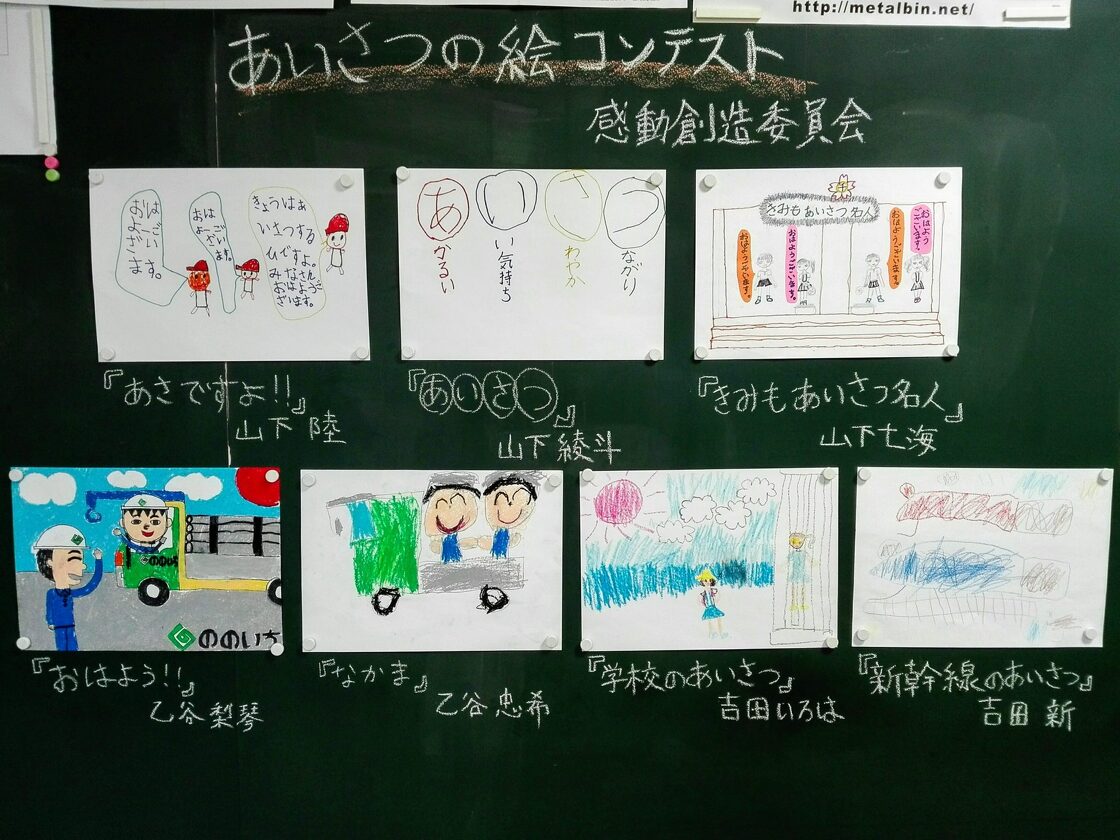 http://metalbin.net/
あいさつの絵コンテスト
感動創造委員会
おはよう
ございます。
おは
よーござい
ます。
きょうはあ
いさつする
ひですよ。
みなさん
おはようご
ざいます。
あかるい
いい気持ち
さわやか
つながり
きみもあいさつ名人
おはようございます。
おはようございます。
おはようございます。
おはよう
ございます。
『あさですよ!!』
山下 陸
『あいさつ』
山下 綾斗
『きみもあいさつ名人』
山下七海
ののいち
『おはよう!!』
乙谷 梨琴
『なかま』
乙谷 忠希
『学校のあいさつ』
吉田いろは
『新幹線のあいさつ』
吉田 新